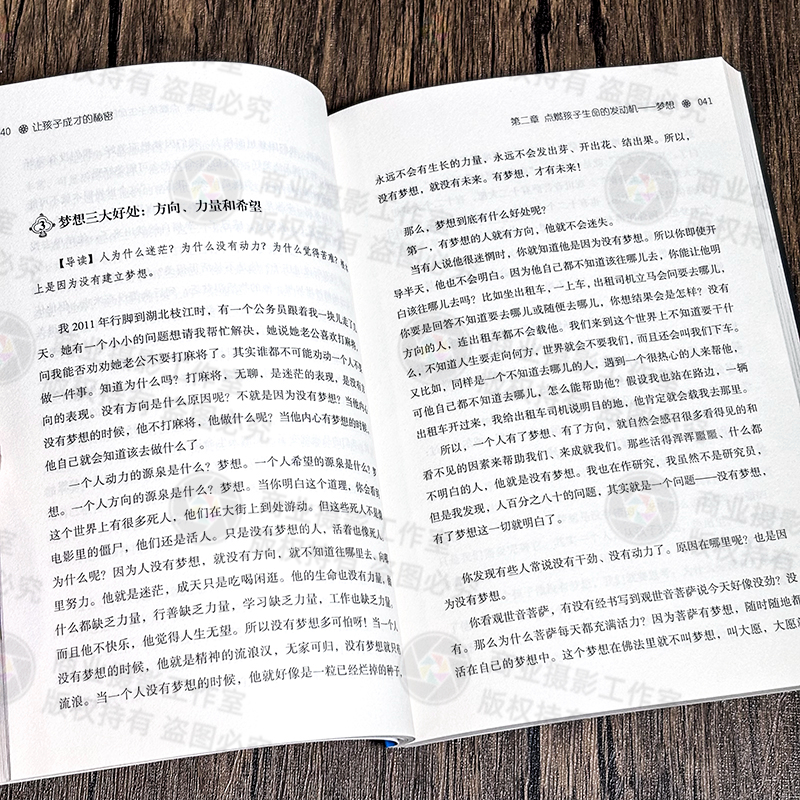 40 让孩子成才的秘密
3 梦想三大好处：方向、力量和希望
【导读】人为什么迷茫？为什么没有动力？为什么觉得苦难？根
上是因为没有建立梦想。
我 2011 年行脚到湖北枝江时，有一个公务员跟着我一块儿走了几
天。她有一个小小的问题想请我帮忙解决，她说她老公喜欢打麻将，
问我能否劝劝她老公不要打麻将了。其实谁都不可能劝动一个人不
做一件事。知道为什么吗？打麻将，无聊，是迷茫的表现，是没有方
向的表现。没有方向是什么原因呢？不就是因为没有梦想？当他内心
没有梦想的时候，他不打麻将，他做什么呢？当他内心有梦想的时候，
他自己就会知道该去做什么了。
一个人动力的源泉是什么？梦想。一个人希望的源泉是什么？梦
想。一个人方向的源泉是什么？梦想。当你明白这个道理，你会看到
这个世界上有很多死人，他们在大街上到处游动。但这些死人不是
电影里的僵尸，他们还是活人。只是没有梦想的人，活着也像死人。
为什么呢？因为人没有梦想，就没有方向，就不知道往哪里去、向哪
里努力。他就是迷茫，成天只是吃喝闲逛。他的生命也没有力量，做
什么都缺乏力量，行善缺乏力量，学习缺乏力量，工作也缺乏力量，
而且他不快乐，他觉得人生无望。所以没有梦想多可怕呀！当一个人
没有梦想的时候，他就是精神的流浪汉，无家可归，没有梦想就只有
流浪。当一个人没有梦想的时候，他就好像是一粒已经烂掉的种子，
第二章 点燃孩子生命的发动机——梦想 041
永远不会有生长的力量，永远不会发出芽、开出花、结出果。所以，
没有梦想，就没有未来。有梦想，才有未来！
那么，梦想到底有什么好处呢？
第一，有梦想的人就有方向，他就不会迷失。
当有人说他很迷惘时，你就知道他是因为没有梦想。所以你即使开
导半天，他也不会明白。因为他自己都不知道该往哪儿去，你能让他明
白该往哪儿去吗？比如坐出租车，一上车，出租司机立马会问要去哪儿，
你要是回答不知道要去哪儿或随便去哪儿，你想结果会是怎样？没有
方向的人，连出租车都不会载他。我们来到这个世界上不知道要干什
么，不知道人生要走向何方，世界就会不要我们，而且还会叫我们下车。
又比如，同样是一个不知道去哪儿的人，遇到一个很热心的人来帮他，
可他自己都不知道去哪儿，怎么能帮助他？假设我也站在路边，一辆
出租车开过来，我给出租车司机说明目的地，他肯定就会载我去那里。
所以，一个人有了梦想、有了方向，就自然会感召很多看得见的和
看不见的因素来帮助我们、来成就我们。那些活得浑浑噩噩、什么都
不明白的人，他就是没有梦想。我也在作研究，我虽然不是研究员，
但是我发现，人百分之八十的问题，其实就是一个问题——没有梦想，
有了梦想这一切就明白了。
你发现有些人常说没有干劲、没有动力了。原因在哪里呢？也是因
为没有梦想。
你看观世音菩萨，有没有经书写到观世音菩萨说今天好像没劲？没
有。那么为什么菩萨每天都充满活力？因为菩萨有梦想，随时随地都
活在自己的梦想中。这个梦想在佛法里就不叫梦想，叫大愿，大愿
商业摄影工作室
版权持有 盗图必究